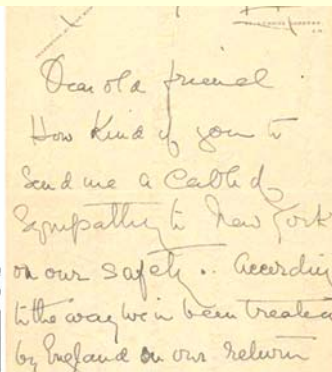 Dear old friend
How Kind of you to
Send me a Cable of
Sympathy to New York
on our safety.. According
to the way we'n been treated
by England on our return